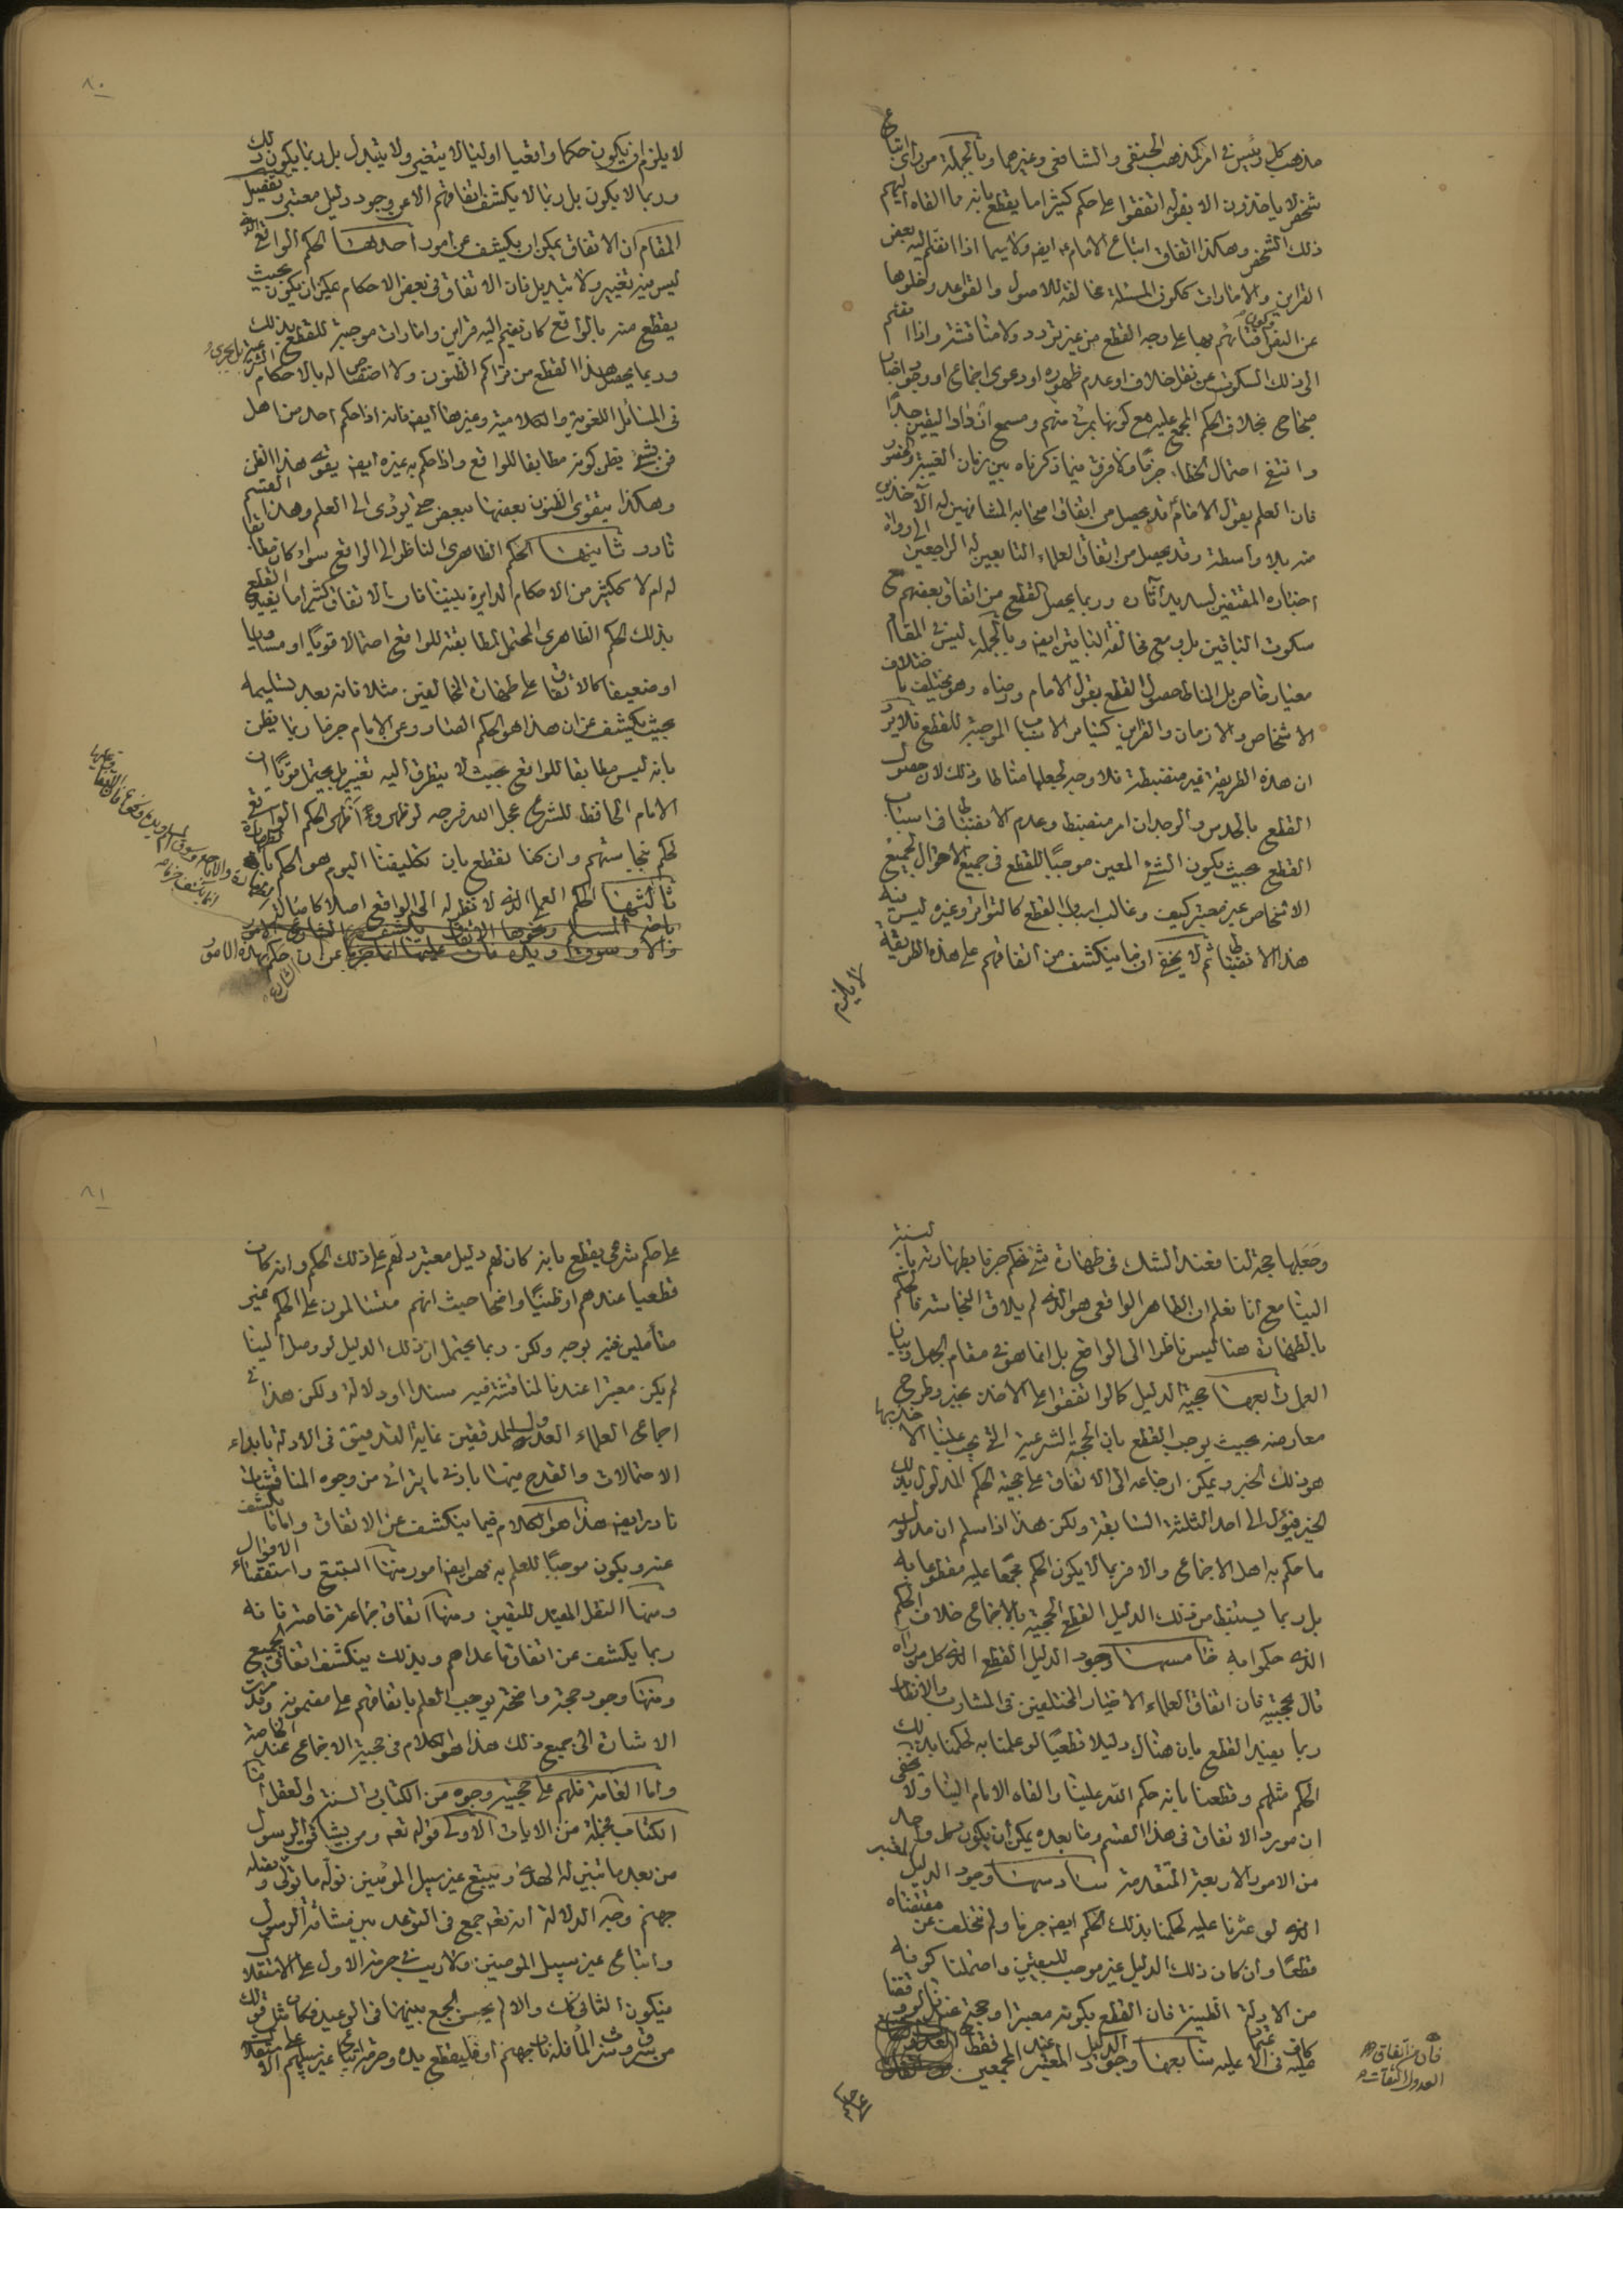 مذهب كل رئيس في امر كمذهب الحنفي والشافعي وغيرهما وبالجملة من راى اتباع
شخص لا ياخذون الا بقوله اتفقوا على حكم كثيرا ما يقطع بانه ما القاه اليهم
ذلك الشخص وهكذا اتفاق اتباع الامام ع ايضا ولا سيما اذا انضم اليه بعض
القراين والامارات ككون المسئلة مخالفة للاصول والقواعد وخلوها
عن النص وكون فتاويهم بها على وجه القطع من غير تردد ولا مناقشة واذا انضم
الى ذلك السكوت عن نقل خلاف او عدم ظهوره او دعوى اجماع او وجود اخبار
صحاح بخلاف الحكم المجمع عليه مع كونها بمرئى منهم ومسمع ازداد اليقين جدا
وانتفى احتمال الخطاء جزما ولا فرق فيما ذكرناه بين زمان الغيبة والحضور
فان العلم بقول الامام قد يحصل من اتفاق اصحابه المشافهين له الآخذين
منه بلا واسطة وقد يحصل من اتفاق العلماء التابعين له الراجعين الى رواة
اخباره المقتفين لسديد آثاره وربما يحصل القطع من اتفاق بعضهم مع
سكوت الباقين بل ومع مخالفة الباقين ايضا وبالجملة ليس في المقام
معيار خاص بل المناط حصول القطع بقول الامام ورضاه وهو يختلف باختلاف
الاشخاص والازمان والقراين كسائر الاسباب الموجبة للقطع فلا يرد
ان هذه الطريقة غير منضبطة فلا وجه لجعلها مناطا وذلك لان حصول
القطع بالحدس والوجدان امر منضبط وعدم الانضباط في اسباب
القطع بحيث يكون الشئ المعين موجبا للقطع في جميع الاحوال لجميع
الاشخاص غير معتبر كيف وغالب اسباب القطع كالتواتر وغيره ليس فيه
هذا الانضباط ثم لا يخفى ان ما ينكشف من اتفاقهم على هذه الطريقة
لا يلزم
٨٠
لا يلزم ان يكون حكما واقعيا اوليا لا يتغير ولا يتبدل بل ربما يكون ذلك
وربما لا يكون بل ربما لا يكشف اتفاقهم الا عن وجود دليل معتبر وتفصيل
المقام ان الاتفاق يمكن ان يكشف عن امور احدها الحكم الواقعي الذي
ليس فيه تغيير ولا تبديل فان الاتفاق في بعض الاحكام يمكن ان يكون بحيث
يقطع منه بالواقع كان ينضم اليه قراين وامارات موجبة للقطع بذلك
وربما يحصل هذا القطع من تراكم الظنون ولا اختصاص له بالاحكام الشرعية بل يجري
في المسائل اللغوية والكلامية وغيرها ايضا فانه اذا حكم احد من اهل
فن بشئ يظن كونه مطابقا للواقع واذا حكم به غيره ايضا يقوى هذا الظن
وهكذا يتقوى الظنون بعضها ببعض حتى يؤدى الى العلم وهذا القسم
نادر ثانيها الحكم الظاهرى الناظر الى الواقع سواء كان مطابقا
له ام لا ككثير من الاحكام الدايرة بيننا فان الاتفاق كثيرا ما يفيد القطع
بذلك الحكم الظاهرى المحتمل لمطابقته للواقع احتمالا قويا او مساويا
او ضعيفا كالاتفاق على طهارة المخالفين مثلا فانه بعد تسليمه
بحيث يكشف عن ان هذا هو الحكم الصادر عن الامام جزما ربما يظن
بانه ليس مطابقا للواقع بحيث لا يتطرق اليه تغيير بل يحتمل قويا ان
الامام الحافظ للشرع عجل الله فرجه لو ظهر واظهر الحكم الواقعي
لحكم بنجاستهم وان كنا نقطع بان تكليفنا اليوم هو الحكم بطهارتهم
ثالثها الحكم العملى الذى لا نظر له الى الواقع اصلا كاصالة
حكم بهذه الامور
الشارع
٨١
وجعلها حجة لنا فعند الشك في طهارة شئ نحكم جزما بطهارته بالنسبة
الينا مع انا نعلم ان الطاهر الواقعى هو الذى لم يلاق النجاسة فالحكم
بالطهارة هنا ليس ناظرا الى الواقع بل انما هو في مقام الجهل وبيان
العمل رابعها حجية الدليل كما لو اتفقوا على الاخذ بخبر وطرح
معارضه بحيث يوجب القطع بان الحجة الشرعية التى يجب علينا الاخذ بها
هو ذلك الخبر ويمكن ارجاعه الى الاتفاق على حجية الحكم المدلول بذلك
الخبر فيؤل الى احد الثلثة السابقة ولكن هذا اذا سلم ان مدلوله
ما حكم به اهل الاجماع والا فربما لا يكون الحكم مجمعا عليه مقطوعا به
بل ربما يستنبط من ذلك الدليل القطعى الحجية بالاجماع خلاف الحكم
الذى حكموا به خامسها وجود الدليل القطعى الذى كل من رآه
قال بحجيته فان اتفاق العلماء الاخيار المختلفين في المشارب والانظار
ربما يفيد القطع بان هناك دليلا قطعيا لو علمنا به لحكمنا بذلك
الحكم مثلهم وقطعنا بانه حكم الله علينا والقاه الامام الينا ولا يخفى
ان مورد الاتفاق في هذا القسم وما بعده يمكن ان يكون كل واحد
من الامور الاربعة المتقدمة سادسها وجود الدليل المعتبر
الذى لو عثرنا عليه لحكمنا بذلك الحكم ايضا جزما ولم نتخلف عن مقتضاه
قطعا وان كان ذلك الدليل غير موجب لليقين واحتملنا كونه
من الادلة الظنية فان القطع بكونه معتبرا وحجة عندنا لو وقفنا
عليه كاف في الاعتماد عليه سابعها وجود الدليل المعتبر عند المجمعين فقط
فان من اتفاق
العدول الثقات
على حكم
على حكم شرعى يقطع بانه كان لهم دليل معتبر دلهم على ذلك الحكم وانه كان
قطعيا عندهم او ظنيا واضحا حيث انهم متسالمون على الحكم غير
متأملين فيه بوجه ولكن ربما يحتمل ان ذلك الدليل لو وصل الينا
لم يكن معتبرا عندنا لمناقشة فيه سندا او دلالة ولكن هذا في
اجماع العلماء العدول المدققين غاية التدقيق في الادلة بابداء
الاحتمالات والقدح فيها بادنى ما يترائى من وجوه المناقشات
نادر ايضا هذا هو الكلام فيما ينكشف عن الاتفاق واما ما يكشف
عنه ويكون موجبا للعلم به فهو ايضا امور منها التتبع واستقصاء الاقوال
ومنها النقل المفيد لليقين ومنها اتفاق جماعة خاصة فانه
ربما يكشف عن اتفاق ما عداهم وبذلك ينكشف اتفاق الجميع
ومنها وجود حجة واضحة يوجب العلم باتفاقهم على مضمونه وقد مرت
الاشارة الى جميع ذلك هذا هو الكلام في حجية الاجماع عند الخاصة
واما العامة فلهم على حجيته وجوه من الكتاب والسنة والعقل اما
الكتاب فجملة من الايات الاولى قوله تعه ومن يشاقق الرسول
من بعد ما تبين له الهدى ويتبع غير سبيل المؤمنين نوله ما تولى ونصله
جهنم وجه الدلالة انه تعه جمع في التوعد بين مشاقة الرسول
واتباع غير سبيل المؤمنين ولا ريب في حرمة الاول على الاستقلال
فيكون الثانى كك والا لم يحسن الجمع بينهما في الوعيد فكان مثل قولك